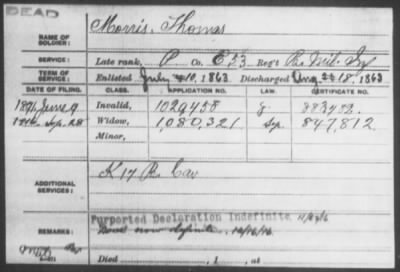 DEAD
NAME OF SOLDIER: Morris, Thomas
SERVICE: Late rank, P Co. E 53 Reg't Pa. Mil. Inf
TERM OF SERVICE: Enlisted July 10, 1863 Discharged Aug. 18, 1863
DATE OF FILING. CLASS. APPLICATION NO. CERTIFICATE NO.
1891 June 9 Invalid, 1029458 883452
Sep. 28 Widow, 1,080,321 847,812
Minor,
ADDITIONAL SERVICES: K 17 Pa Cav
REMARKS: Purported Declaration Indefinite
now definite. 10/16/16
Died , 1 , at